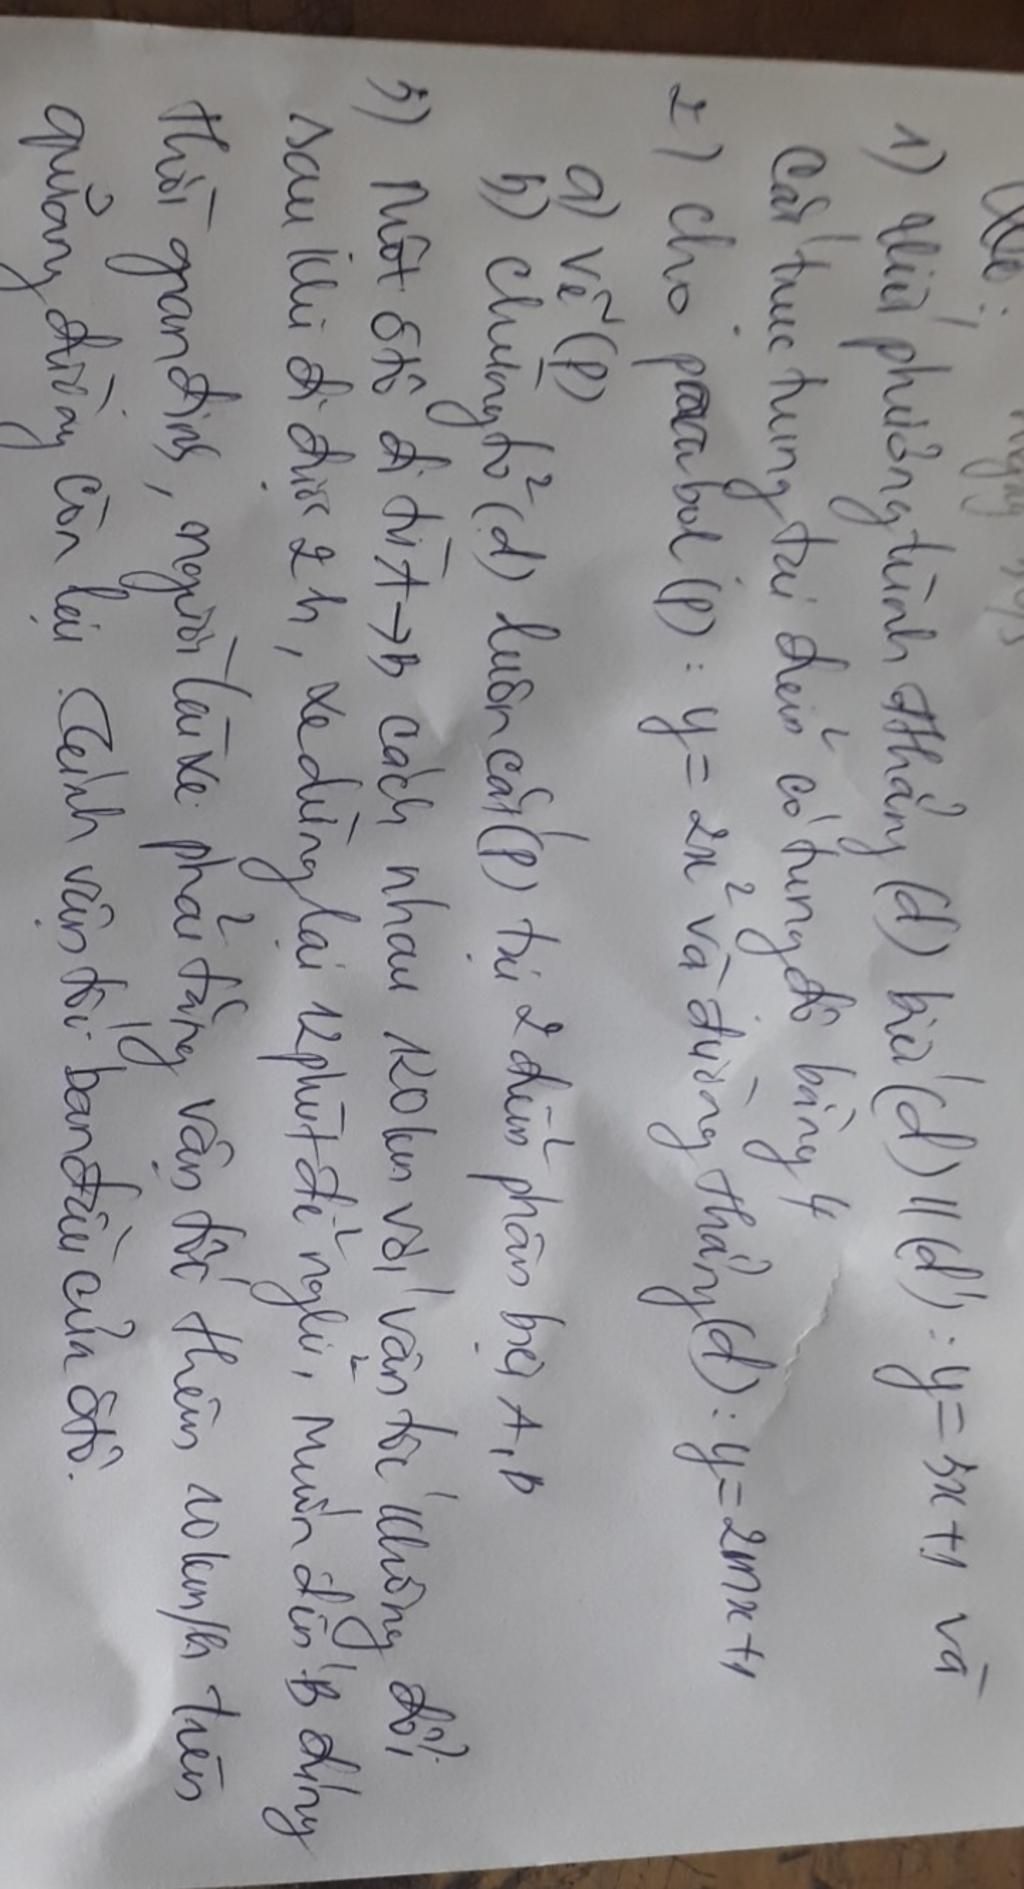 1) Viết phương trình đt thẳng (d) biết (d) // (d'): y = 3x + 1 và
cắt trục tung tại điểm có tung độ bằng 4
2) Cho parabol (P): y = 2x² và đường thẳng (d): y = 2mx + 1
a) Vẽ (P)
b) Chứng tỏ (d) luôn cắt (P) tại 2 điểm phân biệt A, B
3) Một ôtô đi từ A → B cách nhau 120 km với vận tốc không đổi,
sau khi đi được 2h, xe dừng lại 12 phút để nghỉ, muốn đến B đúng
thời gian định, người lái xe phải tăng vận tốc thêm 10 km/h trên
quãng đường còn lại. Tính vận tốc ban đầu của ôtô.